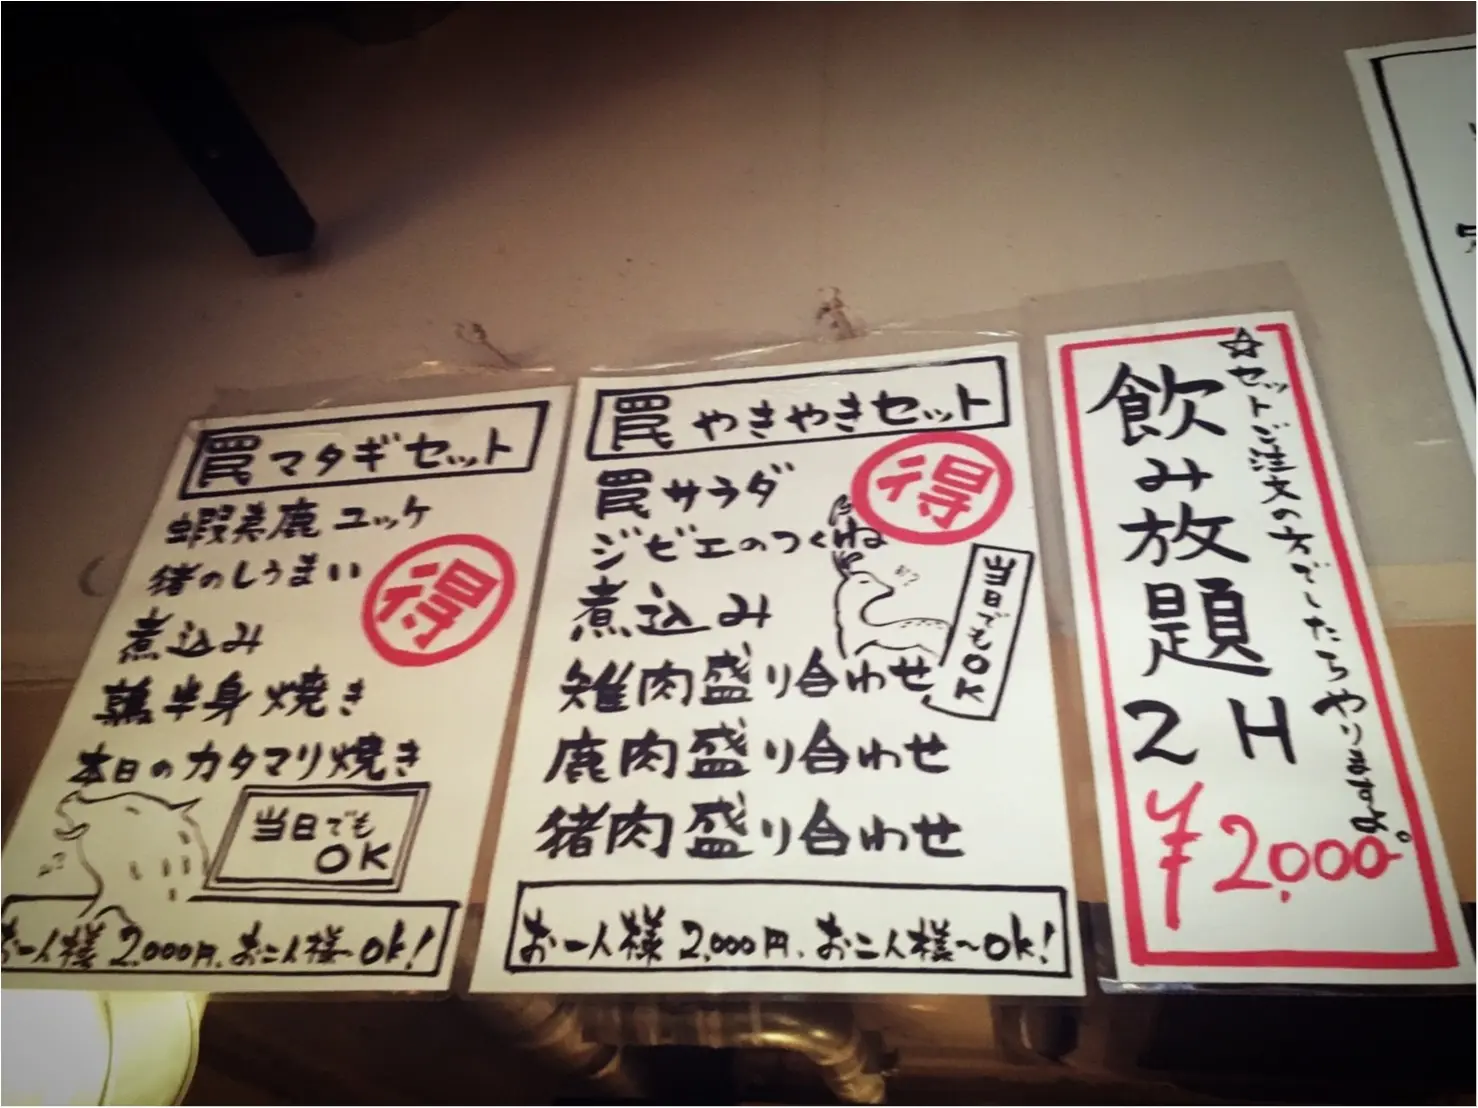 罠マタギセット
蝦夷鹿ユッケ
猪のしうまい
煮込み
得
鶏半身焼き
本日のカタマリ焼き
当日でも
OK
お一人様2,000円、お二人様〜OK!
罠やきやきセット
罠サラダ
得
ジビエのつくね
煮込み
当日でもOK
雉肉盛り合わせ
鹿肉盛り合わせ
猪肉盛り合わせ
お一人様2,000円、お二人様〜OK!
☆セットご注文の方でしたらやります。
飲み放題
2H
¥2,000-